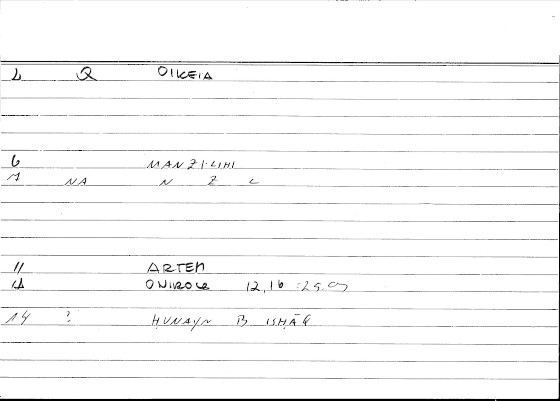 L Q OIKEIA
6 MANZI·LIHI
1 NA N Z L
11 ARTEM
12 ONIROCR 12,16
14 ? ḤUNAYN B ISḤĀQ